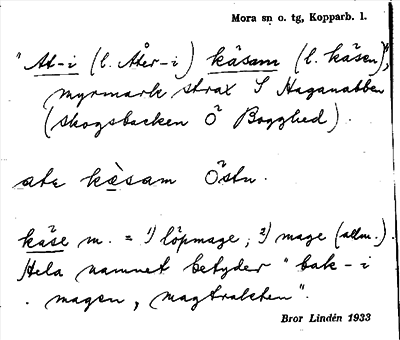 Mora sn o. tg, Kopparb. l.
"At-i (l. Åter-i) käsam (l. käsen)",
myrmark strax S Haganabben
(skogsbacken Ö Bogghed).
ate kɛ̀sam Östn.
käse m. = 1) löpmage; 2) mage (allm.).
Hela namnet betyder "bak-i
magen, magtrakten".
Bror Lindén 1933